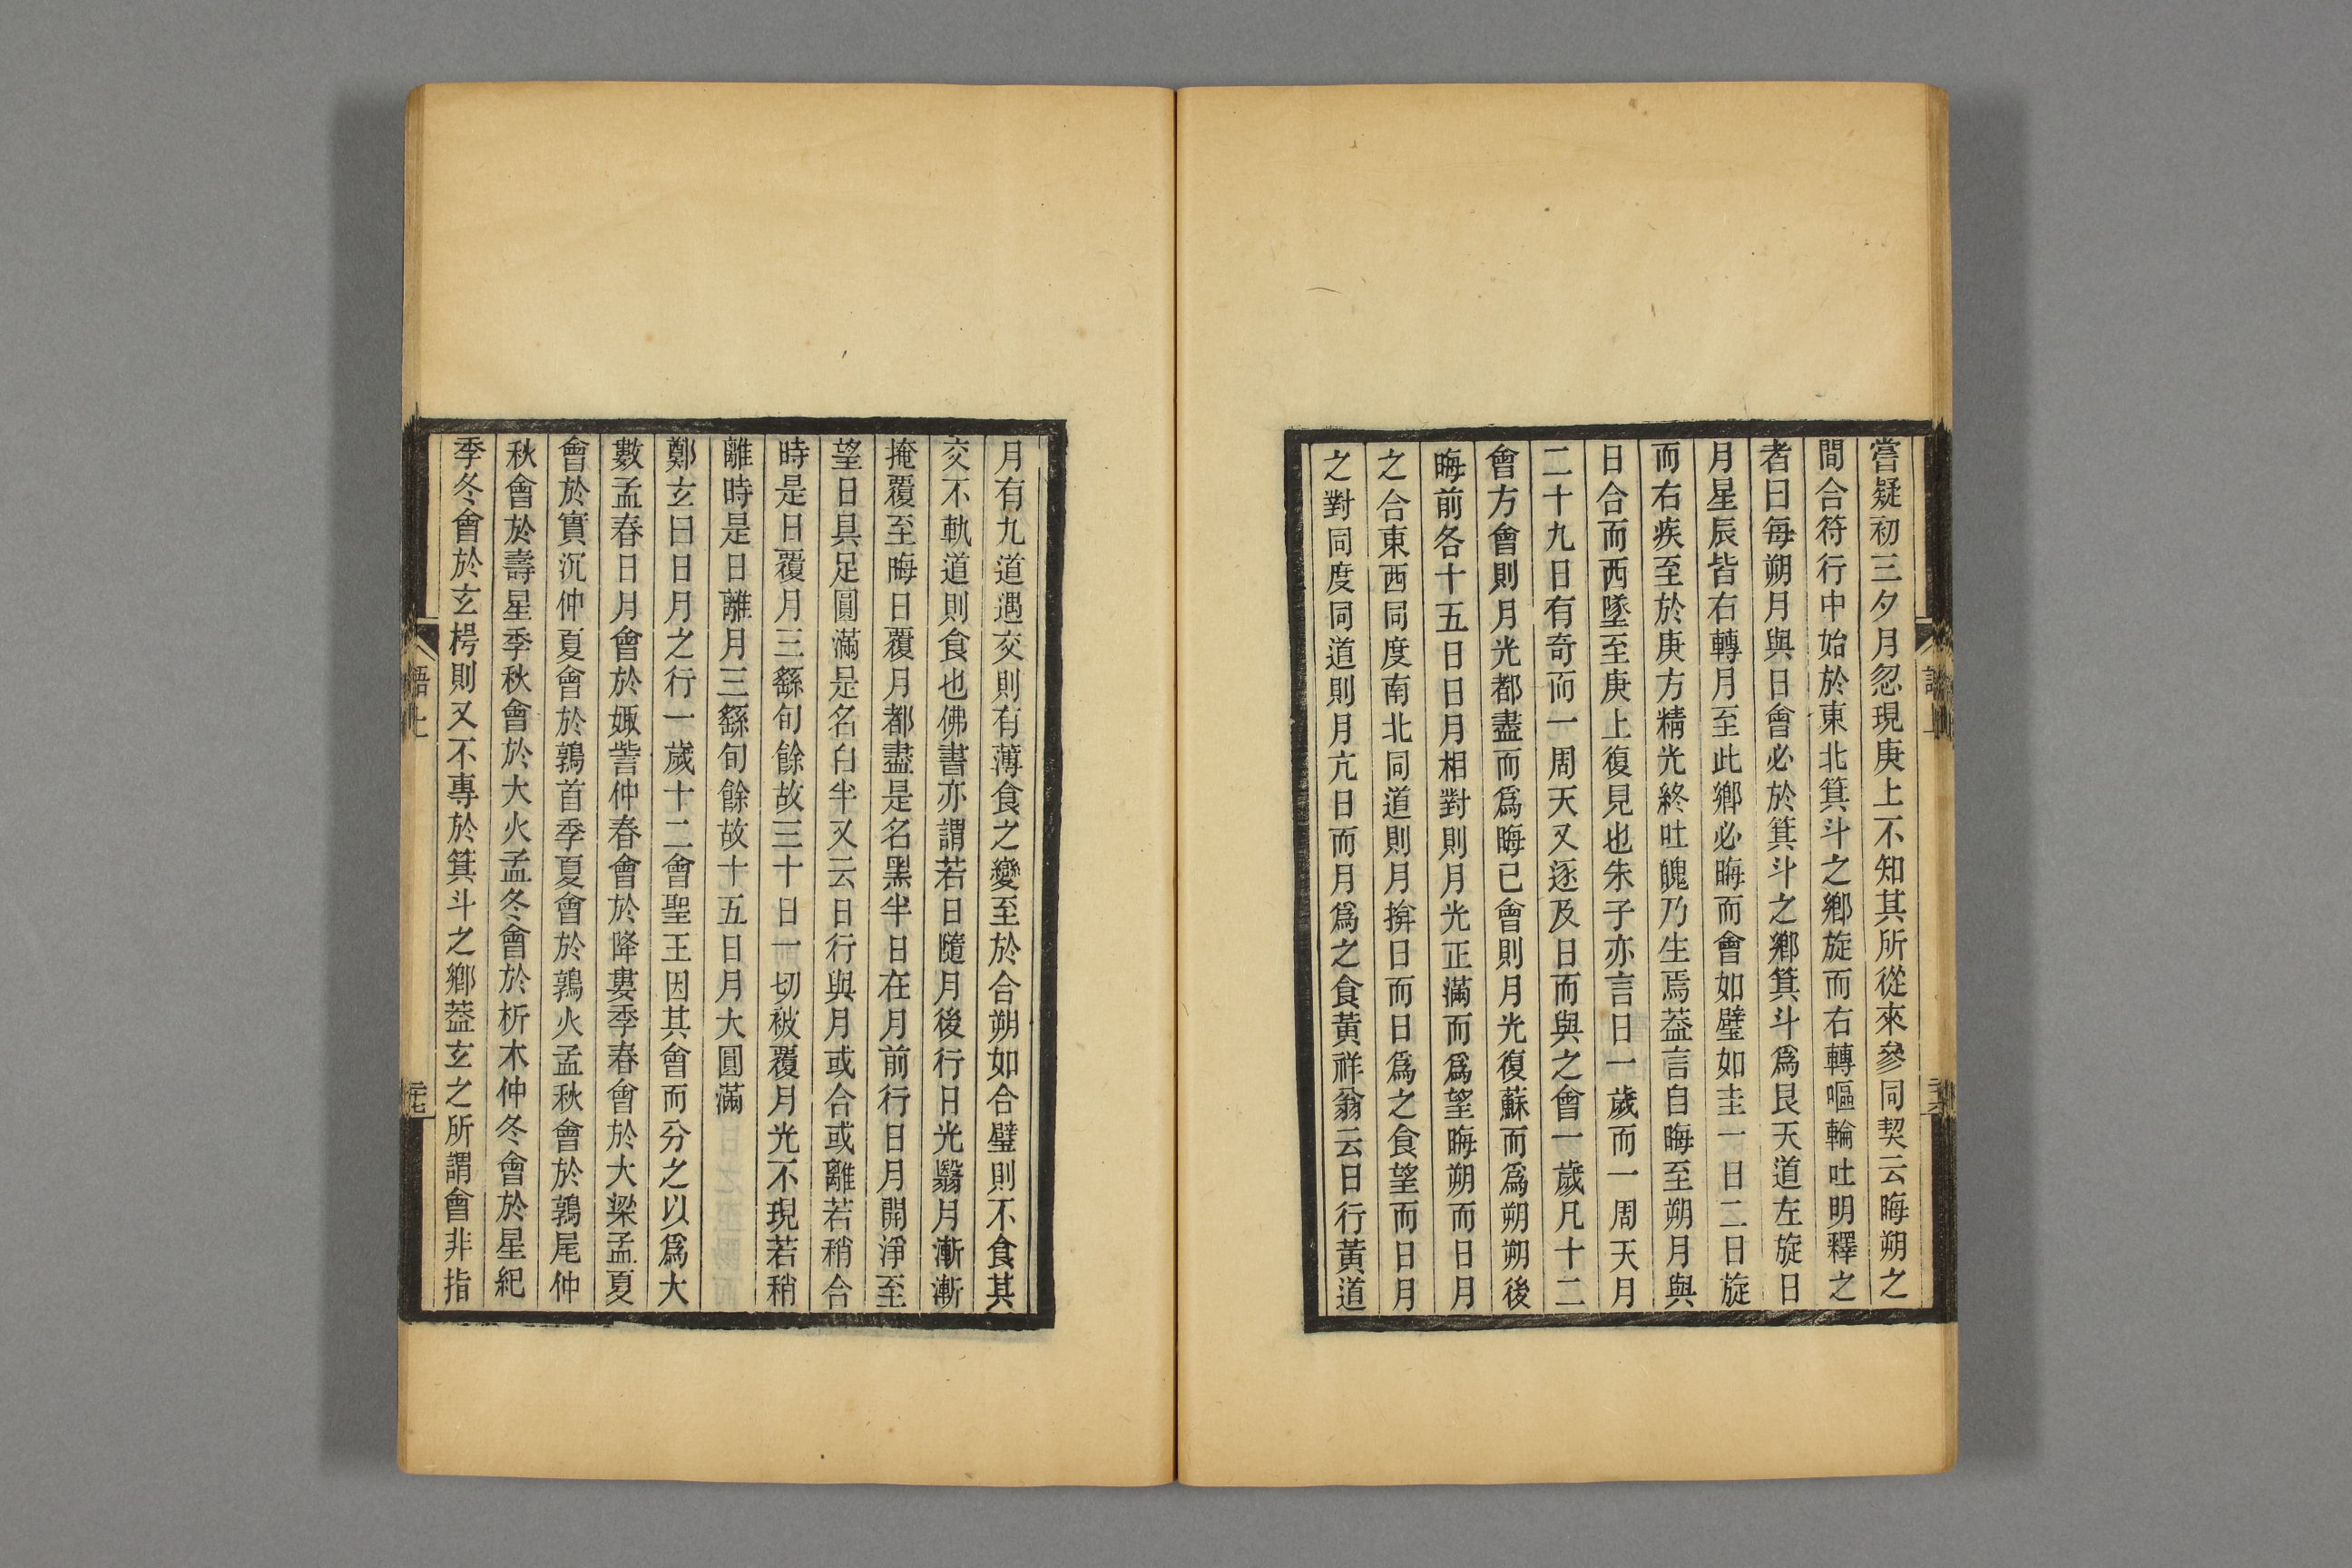 嘗疑初三夕月忽現庚上不知其所從來參同契云晦朔之
間合符行中始於東北箕斗之鄉旋而右轉嘔輪吐明釋之
者曰每朔月與日會必於箕斗之鄉箕斗爲艮天道左旋日
月星辰皆右轉月至此鄉必晦而會如璧如圭一日二日旋
而右疾至於庚方精光終吐魄乃生焉葢言自晦至朔月與
日合而西墜至庚上復見也朱子亦言日一歲而一周天月
二十九日有奇而一周天又逐及日而與之會一歲凡十二
會方會則月光都盡而爲晦已會則月光復蘇而爲朔朔後
晦前各十五日日月相對則月光正滿而爲望晦朔而日月
之合東西同度南北同道則月揜日而日爲之食望而日月
之對同度同道則月亢日而月爲之食黃祥翁云日行黃道
月有九道遇交則有薄食之變至於合朔如合璧則不食其
交不軌道則食也佛書亦謂若日隨月後行日光翳月漸漸
掩覆至晦日覆月都盡是名黑半日在月前行日月開淨至
望日具足圓滿是名白半又云日行與月或合或離若稍合
時是日覆月三繇旬餘故三十日一切被覆月光不現若稍
離時是日離月三繇旬餘故十五日月大圓滿
鄭玄曰日月之行一歲十二會聖王因其會而分之以爲大
數孟春日月會於娵訾仲春會於降婁季春會於大梁孟夏
會於實沉仲夏會於鶉首季夏會於鶉火孟秋會於鶉尾仲
秋會於壽星季秋會於大火孟冬會於析木仲冬會於星紀
季冬會於玄枵則又不專於箕斗之鄉葢玄之所謂會非指
語上